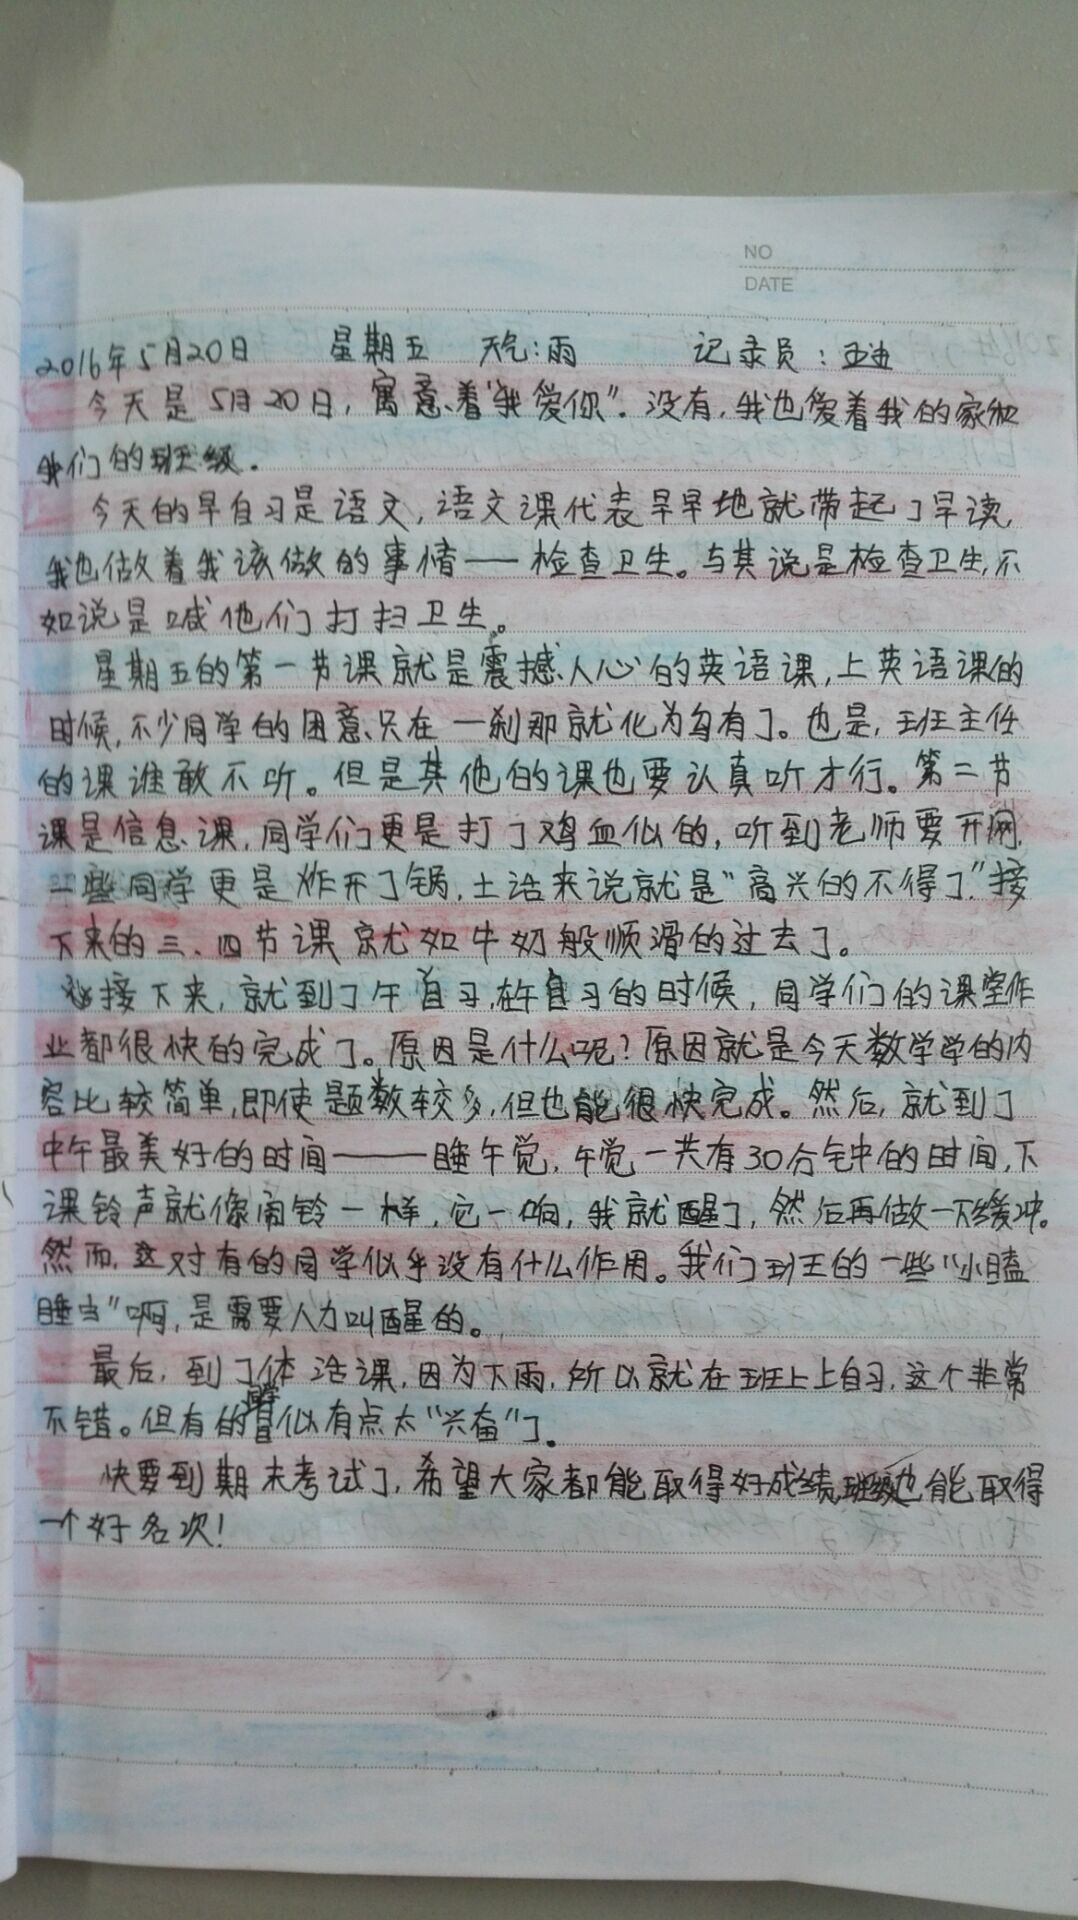 NO
DATE
2016年5月20日 星期五 天气:雨 记录员:
今天是5月20日,寓意着"我爱你"。没有,我也爱着我的家和
我们的班级.
今天的早自习是语文,语文课代表早早地就带起了早读,
我也做着我该做的事情——检查卫生。与其说是检查卫生,不
如说是喊他们打扫卫生。
星期五的第一节课就是震撼人心的英语课,上英语课的
时候,不少同学的困意只在一刹那就化为乌有了。也是,班主任
的课谁敢不听。但是其他的课也要认真听才行。第二节
课是信息课,同学们更是打了鸡血似的,听到老师要开网,
一些同学更是炸开了锅,土话来说就是"高兴的不得了."接
下来的三、四节课就如牛奶般顺滑的过去了。
接下来,就到了午自习,在午自习的时候,同学们的课堂作
业都很快的完成了。原因是什么呢?原因就是今天数学学的内
容比较简单,即使题数较多,但也能很快完成。然后,就到了
中午最美好的时间——睡午觉,午觉一共有30分钟的时间,下
课铃声就像闹铃一样,它一响,我就醒了,然后再做一下缓冲。
然而,这对有的同学似乎没有什么作用。我们班的一些"小瞌
睡虫"啊,是需要人力叫醒的。
最后,到了体活课,因为下雨,所以就在班上上自习,这个非常
不错。但有的同学似有点太"兴奋"了.
快要到期末考试了,希望大家都能取得好成绩,班级也能取得
一个好名次!